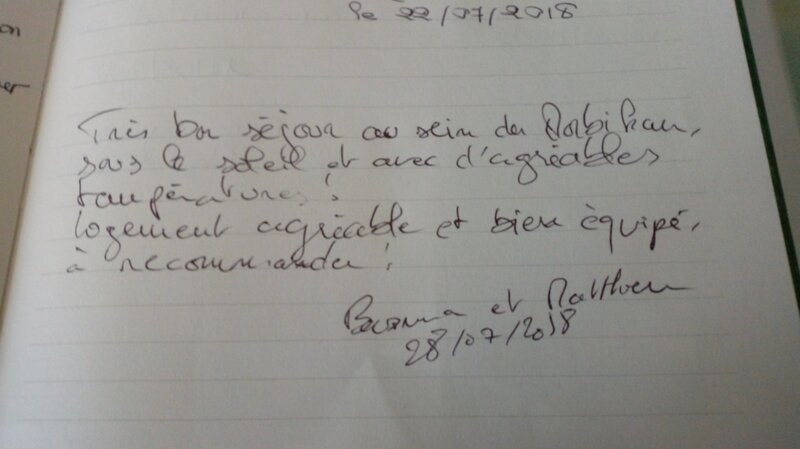 on
er
le 22/07/2018
Très bon séjour au sein du Morbihan,
sous le soleil et avec d'agréables
températures !
logement agréable et bien équipé,
à recommander !
et Matthieu
28/07/2018